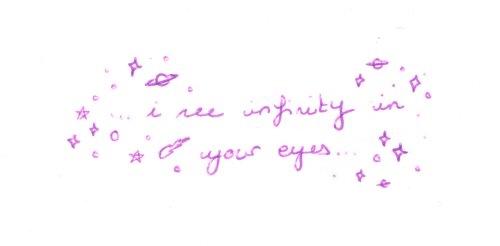 ... i see infinity in
your eyes...